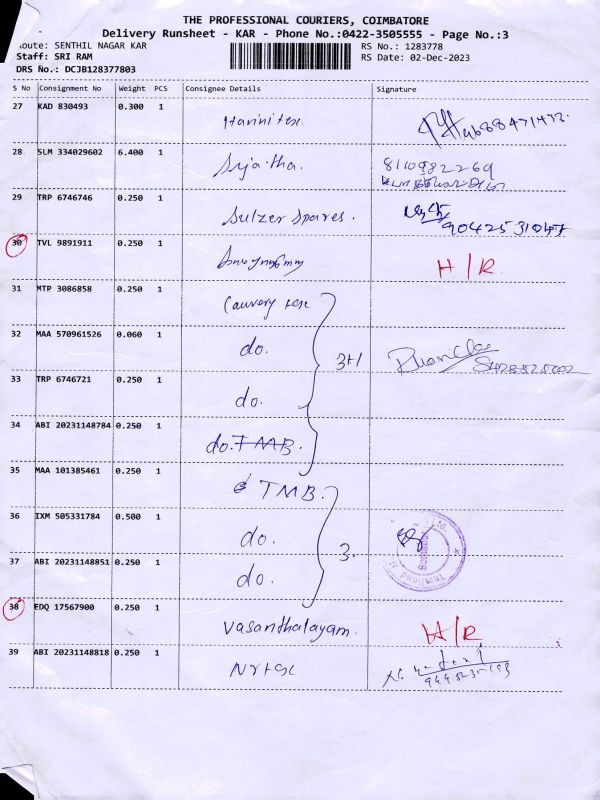 THE PROFESSIONAL COURIERS, COIMBATORE
Delivery Runsheet - KAR - Phone No.:0422-3505555 - Page No.:3
Route: SENTHIL NAGAR KAR RS No.: 1283778
Staff: SRI RAM RS Date: 02-Dec-2023
DRS No.: DCJB128377803
S No Consignment No Weight PCS Consignee Details Signature
27 KAD 830493 0.300 1
28 SLM 334029602 6.400 1 Sujatha.
29 TRP 6746746 0.250 1 Sulzer Spares.
30 TVL 9891911 0.250 1 H/R
31 MTP 3086858 0.250 1 Cauvery tex
32 MAA 570961526 0.060 1 do. 3+1
33 TRP 6746721 0.250 1 do.
34 ABI 20231148784 0.250 1 do. TMB.
35 MAA 101385461 0.250 1 TMB.
36 IXM 505331784 0.500 1 do. 3.
37 ABI 20231148851 0.250 1 do.
38 EDQ 17567900 0.250 1 Vasanthalayam. H/R
39 ABI 20231148818 0.250 1